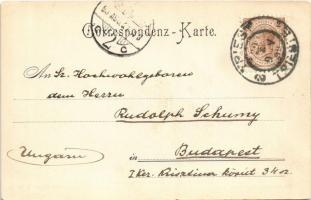 Correspondenz-Karte.
TRIEST TRIESTE
An Sr. Hochwohlgeboren
dem Herrn
Rudolph Schumy
Ungarn
in Budapest
I Ker. Krisztina körút 34 sz.